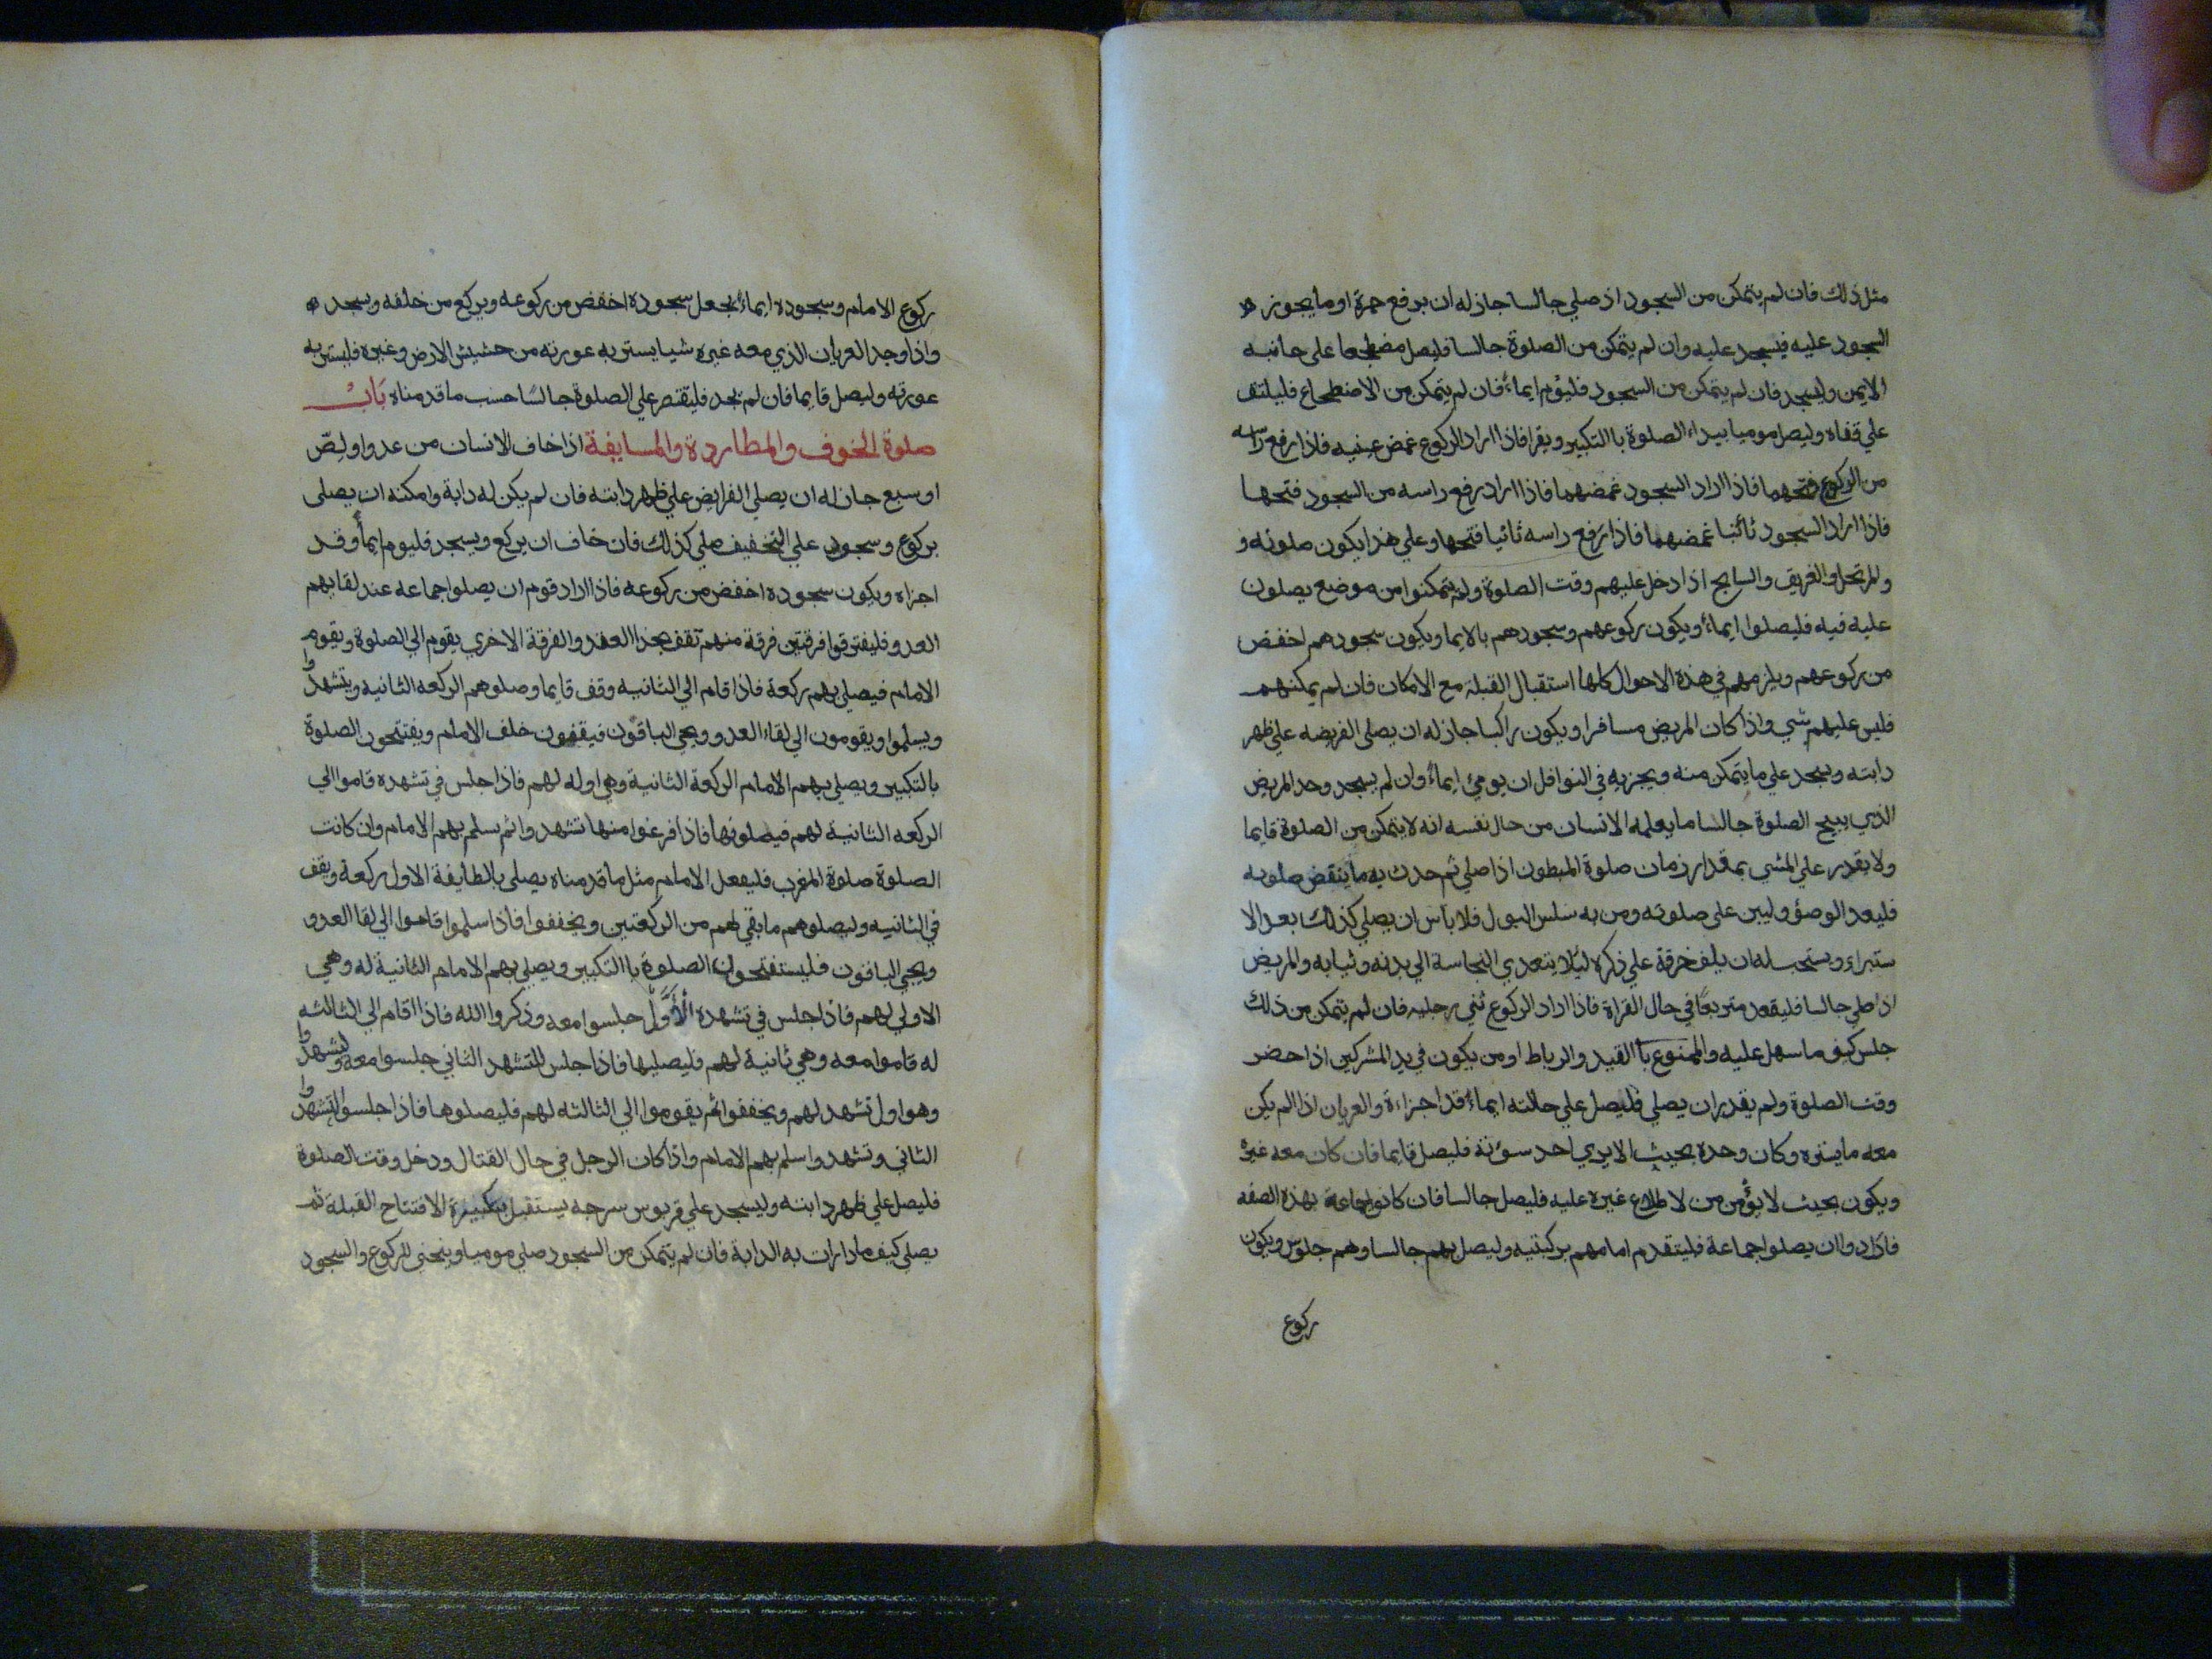 مثل ذلك فان لم يتمكن من السجود اذ صلي جالسا جاز له ان يرفع خمرة او ما يجوز
السجود عليه فيسجد عليه وان لم يتمكن من الصلوة جالسا فليصل مضطجعا على جانبه
الايمن وليسجد فان لم يتمكن من السجود فليؤم ايماءً فان لم يتمكن من الاضطجاع فليلتق
علي قفاه وليصل موميا يبداء الصلوة باالتكبير ويقرا فاذا اراد الركوع غمض عينيه فاذا رفع راسه
من الركوع فتحهما فاذا اراد السجود غمضهما فاذا اراد رفع راسه من السجود فتحها
فاذا اراد السجود ثانيا غمضهما فاذا رفع راسه ثانيا فتحها وعلي هذا يكون صلوته و
وللمرتحل والغريق والسابح اذا دخل عليهم وقت الصلوة ولم يتمكنوا من موضع يصلون
عليه فيه فليصلوا ايماءً ويكون ركوعهم وسجودهم بالايما ويكون سجودهم اخفض
من ركوعهم ويلزمهم في هذة الاحوال كلها استقبال القبلة مع الامكان فان لم يمكنهم
فليس عليهم شي واذا كان المريض مسافرا ويكون راكبا جاز له ان يصلى الفريضه علي ظهر
دابته ويسجد علي ما يتمكن منه ويجزيه في النوافل ان يومئ ايماءً وان لم يسجد وحد المريض
الذي يبيح الصلوة جالسا ما يعلمه الانسان من حال نفسه انه لا يتمكن من الصلوة قايما
ولا يقدر علي المشي بمقدار زمان صلوة المبطون اذا صلي ثم حدث به ما ينقض صلوته
فليعد الوضؤ وليبن على صلوته ومن به سلس البول فلا باس ان يصلي كذلك بعد الا
ستبراء ويستحب له ان يلف خرقة علي ذكره ليلا يتعدي النجاسة الي بدنه وثيابه والمريض
اذا صلي جالسا فليقعد متربعًا في حال القراة فاذا اراد الركوع ثني رجليه فان لم يتمكن من ذلك
جلس كيف ما سهل عليه والممنوع باالقيد والرباط او من يكون في يد المشركين اذا حضر
وقت الصلوة ولم يقدر ان يصلي فليصل علي حالته ايماءً قد اجزاءة والعريان اذا لم يكن
معه ما يستره وكان وحدة بحيث الا يري احد سؤته فليصل قايما فان كان معه غيرة
ويكون بحيث لا يؤمن من لا طلاع غيره عليه فليصل جالسا فان كانوا جماعة بهذة الصفه
فارادوا ان يصلوا جماعة فليتقدم امامهم بركبتيه وليصل بهم جالسا وهم جلوس ويكون
ركوع
ركوع الامام وسجوده ايماءً يجعل سجودة اخفض من ركوعه ويركع من خلفه ويسجد
واذا وجد العريان الذي معه غيره شيا يستر به عورته من حشيش الارض وغيره فليستر به
عورته وليصل قايما فان لم يجد فليقتصر علي الصلوة جالسًا حسب ما قدمناه بَابْ
صلوة الخوف والمطاردة والمسايفة اذا خاف الانسان من عدو او لصّ
او سبع جاز له ان يصلي الفرايض علي ظهر دابته فان لم يكن له دابة وامكنه ان يصلى
بركوع وسجود علي التخفيف صلي كذلك فان خاف ان يركع ويسجد فليوم ايماءً وقد
اجزاه ويكون سجوده اخفض من ركوعه فاذا اراد قوم ان يصلوا جماعه عند لقايهم
العدو فليفترقوا فرقتين فرقة منهم تقف بحذا العدو والفرقة الاخري يقوم الي الصلوة ويقوم
الامام فيصلي بهم ركعة فاذا قام الي الثانيه وقف قايما وصلوهم الركعه الثانيه ويتشهدوا
ويسلموا ويقومون الي لقاء العدو ويجي الباقون فيقفون خلف الامام ويفتتحون الصلوة
بالتكبير ويصلي بهم الامام الركعة الثانية وهي اوله لهم فاذا جلس في تشهده قاموا الي
الركعه الثانية لهم فيصلونها فاذا فرغوا منها تشهدوا ثم يسلم بهم الامام وان كانت
الصلوة صلوة المغرب فليفعل الامام مثل ما قدمناه يصلي بالطايفة الاول ركعة ويقف
في الثانيه وليصلوهم ما بقي لهم من الركعتين ويخففوا فاذا سلموا قاموا الي لقا العدو
ويجي الباقون فليستفتحون الصلوة باالتكبير ويصلي بهم الامام الثانية له وهي
الاولي لهم فاذا جلس في تشهده الْأَوَّلْ جلسوا معه وذكروا الله فاذا اقام الي الثالثه
له قاموا معه وهي ثانية لهم فليصليها فاذا جلس للتشهد الثاني جلسوا معه وليشهدوا
وهو اول تشهد لهم ويخففوا ثم يقوموا الي الثالثه لهم فليصلوها فاذا جلسوا لتشهدوا
الثاني وتشهدوا سلم بهم الامام واذا كان الرجل في حال القتال ودخل وقت الصلوة
فليصل علي ظهر دابته وليسجد علي قربوس سرجه يستقبل بتكبيرة الافتتاح القبلة ثم
يصلي كيف ما دارت به الدابة فان لم يتمكن من السجود صلي موميا وينحني للركوع والسجود